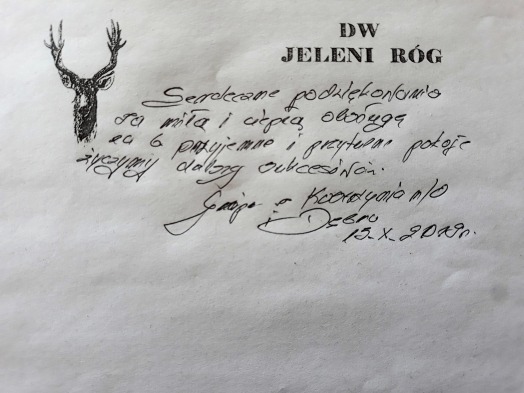 DW
JELENI RÓG
Serdeczne podziękowania
za miłą i ciepłą obsługę
za przyjemne i przytulne pokoje
życzymy dalszych sukcesów.
Grupa z n/o
i Dębna
13-X-2019r.